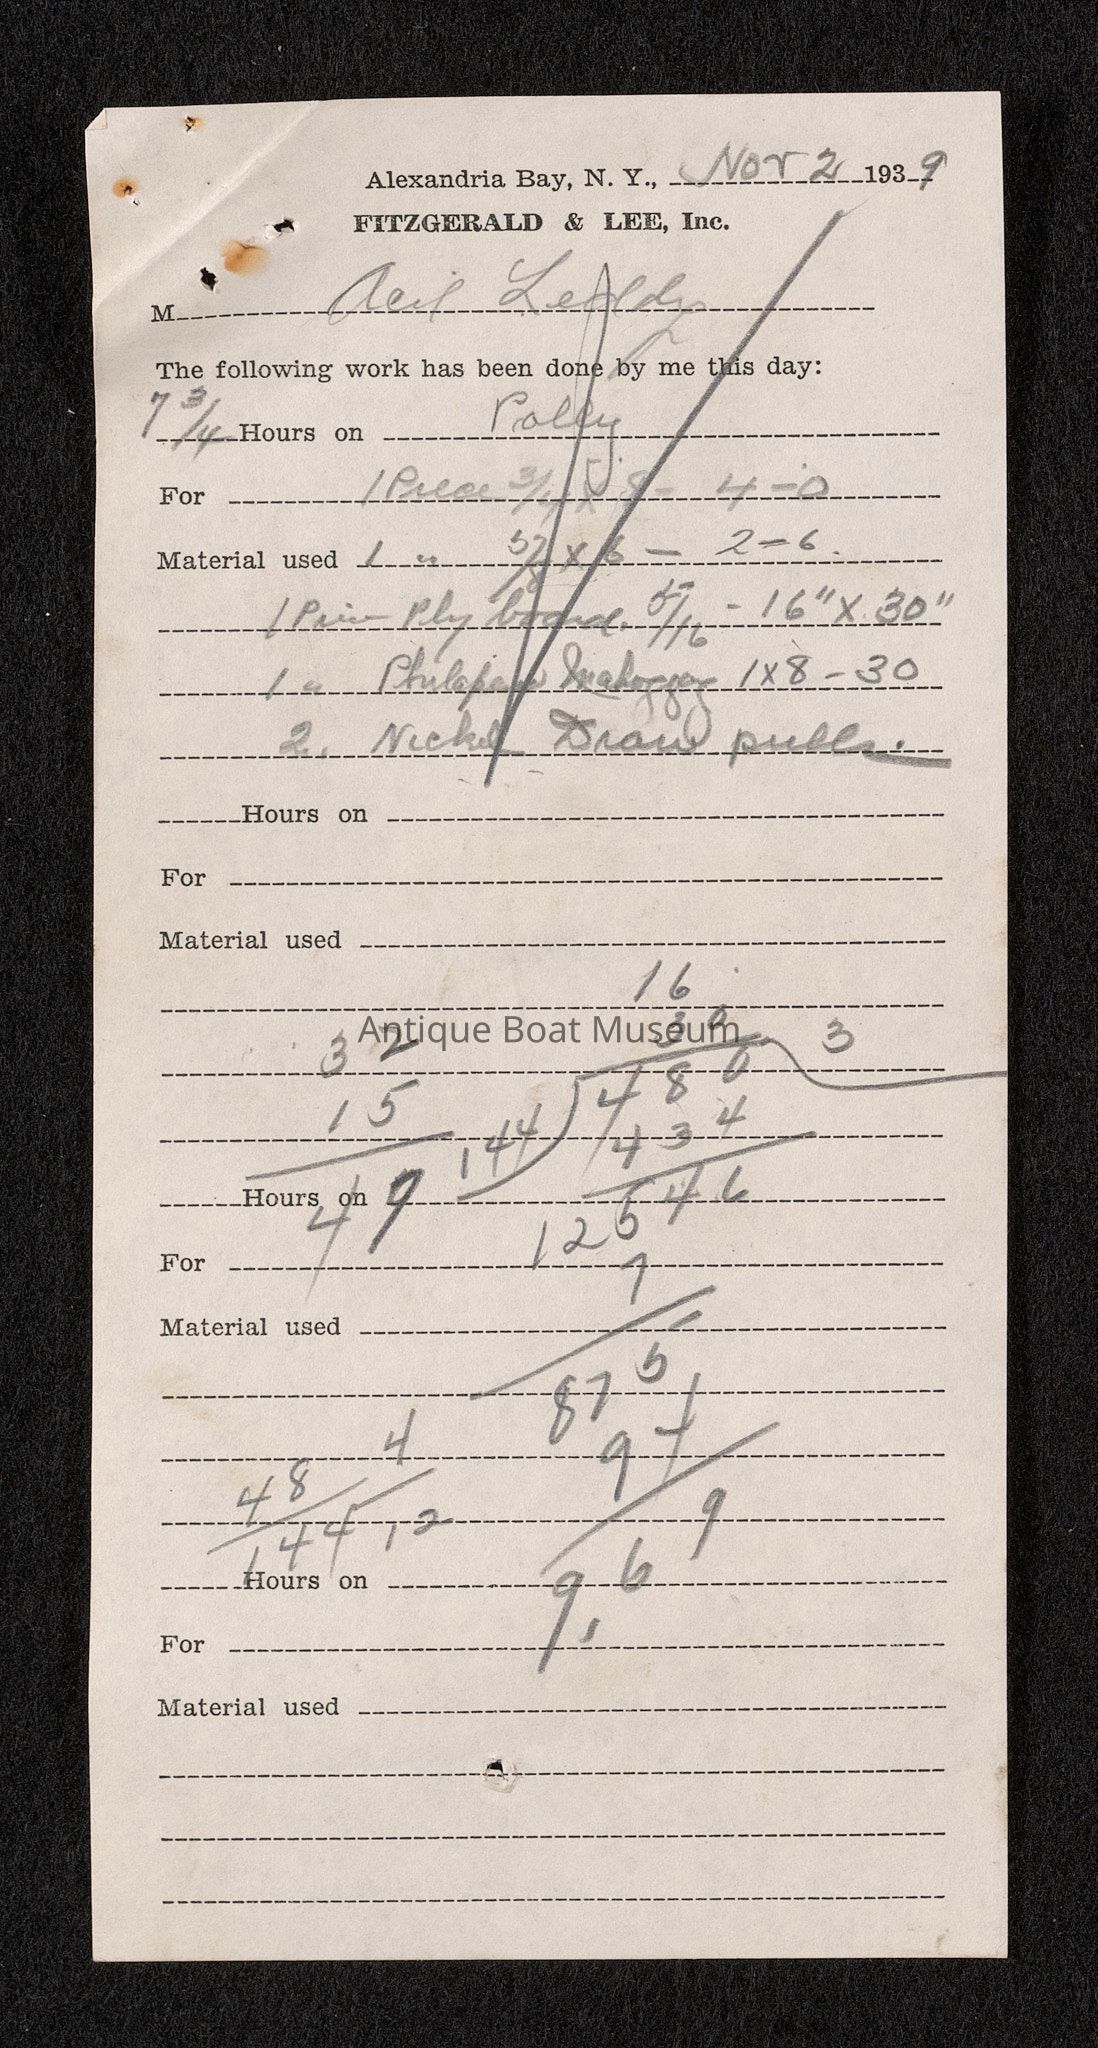 Alexandria Bay, N. Y., Nov 2 1939
FITZGERALD & LEE, Inc.
M
The following work has been done by me this day:
7 3/4 Hours on Polly
For 1 Piece 3/4 x 8 - 4-0
Material used 1 " 5/8 x 6 - 2-6.
1 Ply board. 5/16 - 16" X 30"
1 " Mahogany 1x8 - 30
2. Nickel Draw pulls.
Hours on
For
Material used
16
Antique Boat Museum
32 30 3
15 144 480
434
Hours on 49 46
125
For 7
Material used
875
94
4
48 9
144 12
Hours on 9.6
For
Material used